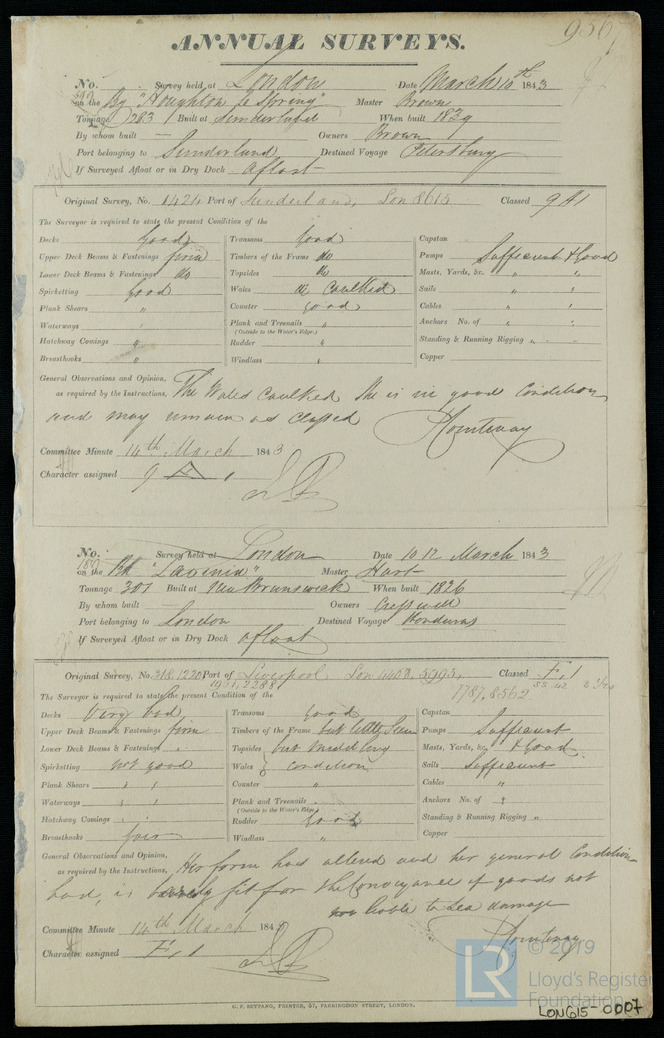 ANNUAL SURVEYS.
No. Survey held at London Date March 10th 1843
on the Bg "Houghton le Spring" Master Brown
Tonnage 283 Built at Sunderland When built 1839
By whom built — Owners Brown
Port belonging to Sunderland Destined Voyage Petersburg
If Surveyed Afloat or in Dry Dock afloat
Original Survey, No. 1424 Port of Sunderland, Lon 8615 Classed 9 A 1
The Surveyor is required to state the present Condition of the
Decks Good Transoms Good Capstan
Upper Deck Beams & Fastenings firm Timbers of the Frame do Pumps Sufficient & Good
Lower Deck Beams & Fastenings do Topsides do Masts, Yards, &c. " "
Spirketting Good Wales do Caulked Sails " "
Plank Shears " Counter good Cables " "
Waterways " Plank and Treenails " Anchors No. of " "
(Outside to the Water's Edge.)
Hatchway Comings " Rudder " Standing & Running Rigging "
Breasthooks " Windlass " Copper
General Observations and Opinion,
as required by the Instructions, The Wales Caulked She is in good Condition
and may remain as classed Countenay
Committee Minute 14th March 1843
Character assigned 9 A 1
No. Survey held at London Date 10 12 March 1843
on the Bk "Lavinia" Master Hart
Tonnage 307 Built at New Brunswick When built 1826
By whom built Owners Cresswell
Port belonging to London Destined Voyage Honduras
If Surveyed Afloat or in Dry Dock afloat
Original Survey, No. 318.1220 Port of Liverpool Lon Classed Æ 1
1787,8562
The Surveyor is required to state the present Condition of the
Decks Very bad Transoms good Capstan
Upper Deck Beams & Fastenings firm Timbers of the Frame but little Seen Pumps Sufficient
Lower Deck Beams & Fastenings " Topsides but middling Masts, Yards, &c. & Good
Spirketting not good Wales condition Sails Sufficient
Plank Shears " " Counter " Cables "
Waterways " " Plank and Treenails Anchors No. of "
(Outside to the Water's Edge.)
Hatchway Comings " " Rudder Good Standing & Running Rigging "
Breasthooks fair Windlass " Copper
General Observations and Opinion,
as required by the Instructions, Her form has altered and her general Condition
bad, is barely fit for the Conveyance of goods not
liable to Sea damage
Committee Minute 14th March 184
Character assigned Æ 1
G. F. SETTANG, PRINTER, 57, FARRINGDON STREET, LONDON.
LR © 2019
Lloyd's Register
Foundation
LON615-0007